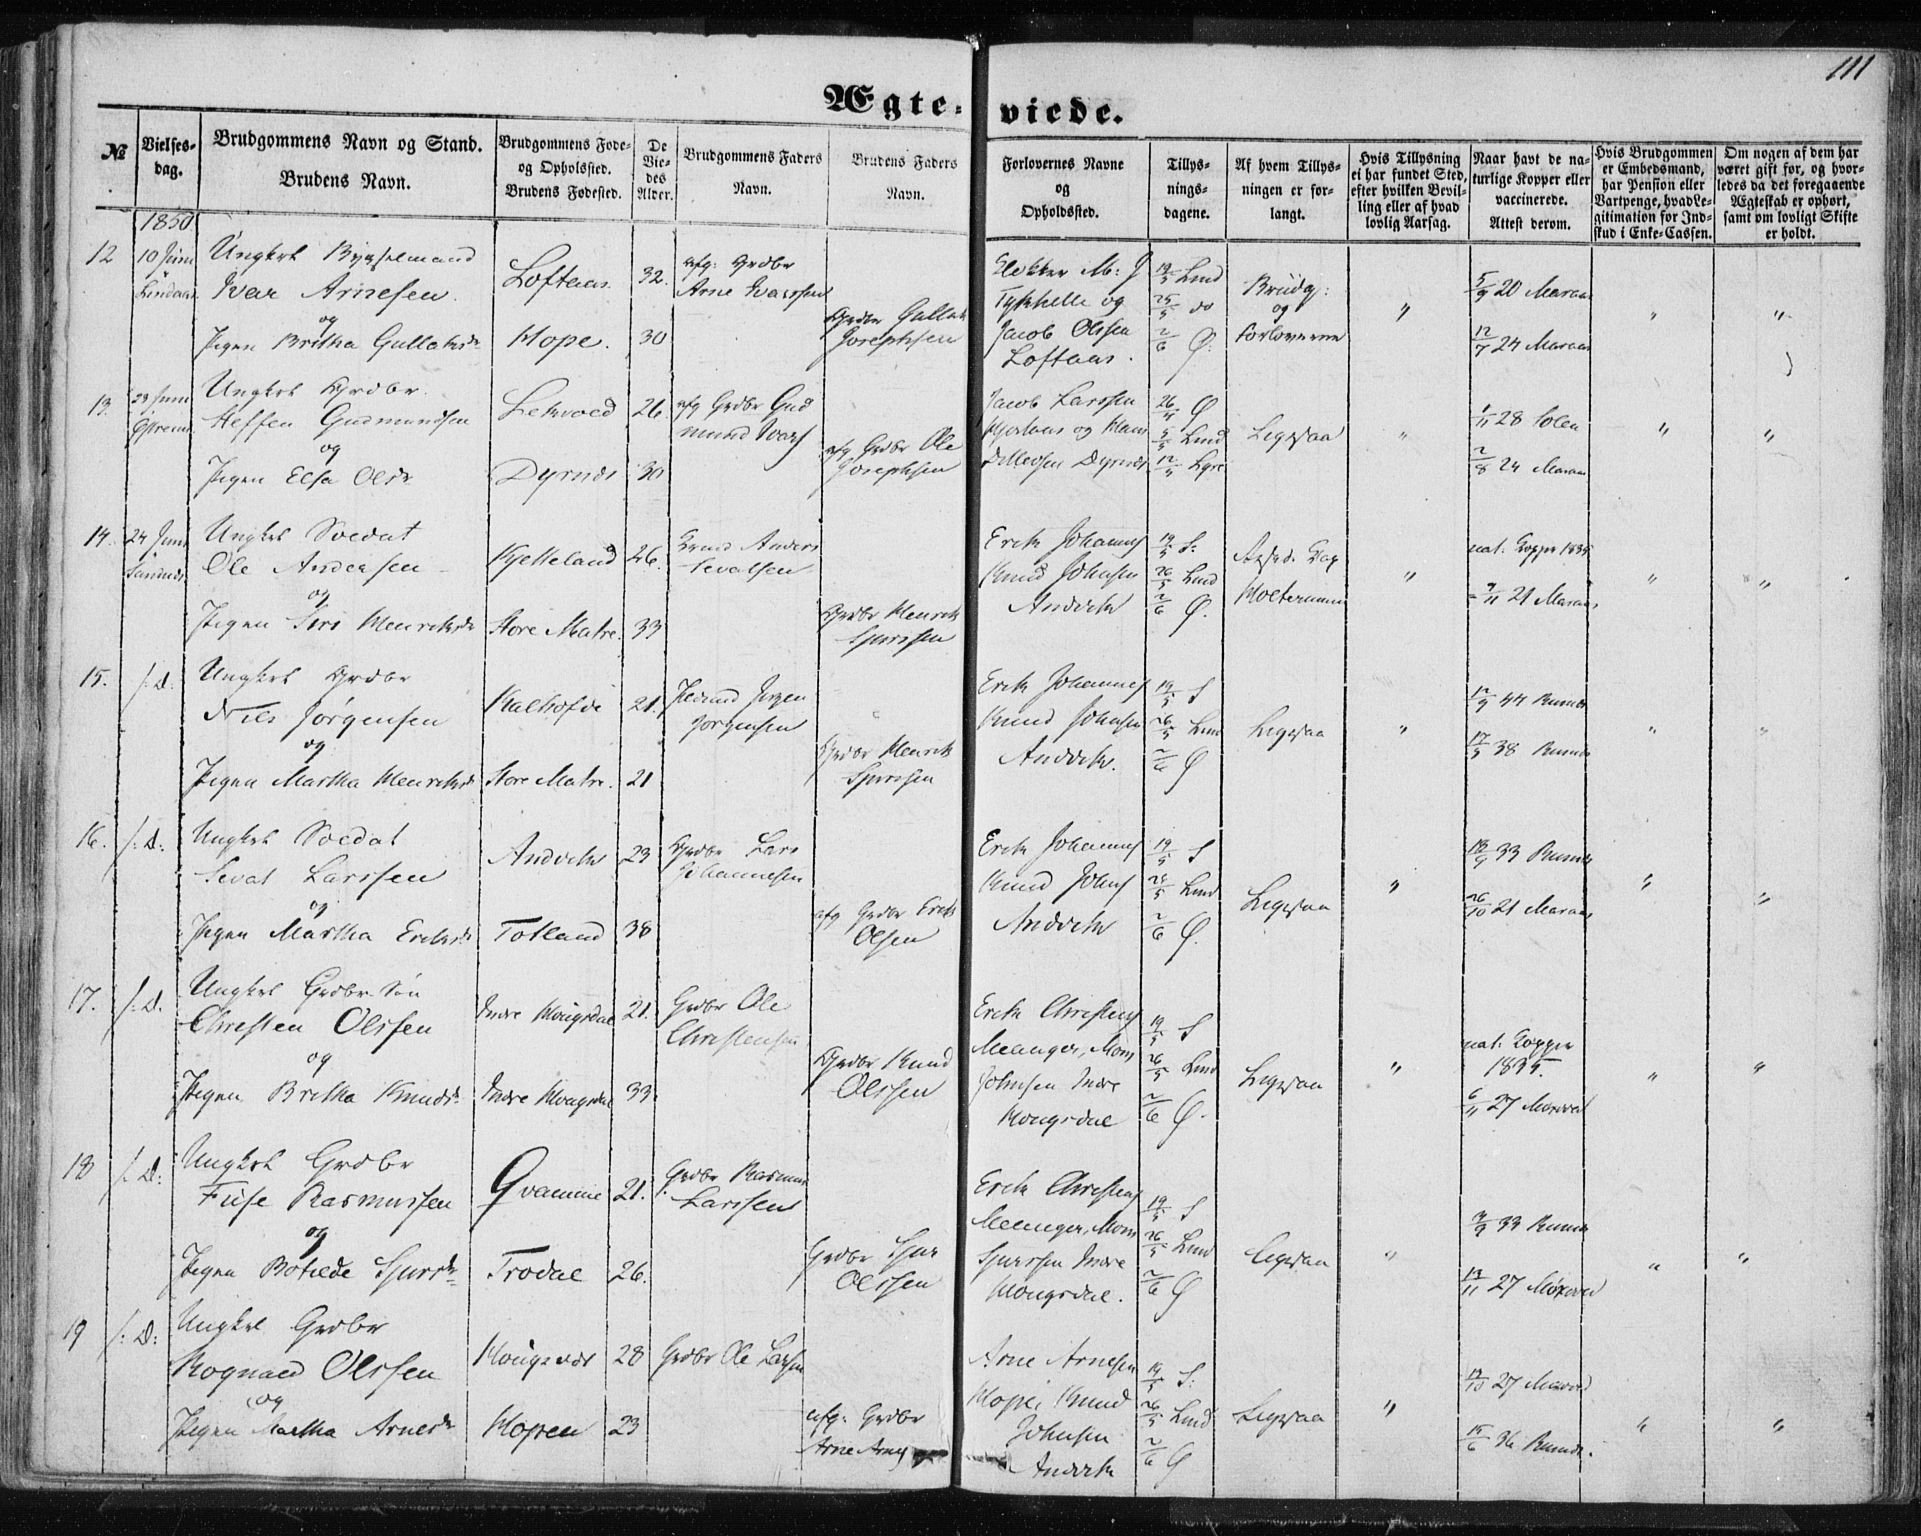 111
Ægte-viede.
№
Vielses-
dag.
Brudgommens Navn og Stand.
Brudens Navn.
Brudgommens Føde-
og Opholssted.
Brudens Fødested.
De
Vie-
des
Alder.
Brudgommens Faders
Navn.
Brudens Faders
Navn.
Forlovernes Navne
og
Opholdssted.
Tillys-
nings-
dagene.
Af hvem Tillys-
ningen er for-
langt.
Hvis Tillysning
ei har fundet Sted,
efter hvilken Bevil-
ling eller af hvad
lovlig Aarsag.
Naar havt de na-
turlige Kopper eller
vaccinerede.
Attest derom.
Hvis Brudgommen
er Embedsmand,
har Pension eller
Vartpenge, hvad Le-
gitimation for Ind-
skud i Enke-Cassen.
Om nogen af dem har
været gift før, og hvor-
ledes da det foregaaende
Ægteskab er ophørt,
samt om lovligt Skifte
er holdt.
1850
12
10 Juni
Lindaas
Ungkrl Bygselmand
Ivar Arnesen
og
Pigen Britha Gullaksdr
Loftaas
Hope.
32.
30
afg: Grdbr
Arne Ivarssen
Grdbr Gullak
Josephsen
Klokker M: J
Tykhelle og
Jacob Olssen
Loftaas.
19/5 Lind
25/5 do
2/6 Ø.
Brudg:
og
Forloverne
"
5/9 20 Maraas
12/7 24 Maraas
"
"
13.
23 Juni
Ungkrl Grdbr.
Steffen Gudmundsen
og
Pigen Elsa Olsdr
Lekvoed
Dyrnæs
26
30
afg Grdbr Gud
mund Ivars
afg Grdbr Ole
Josephsen
Jacob Larssen
og Hans
Dyrnæs
26/4 Ø
5/5 Lind
12/5 Lyre
Ligesaa
"
1/11 28 Solen
2/8 24 Maraas
"
"
14.
24 Juni
Ungkrl Soldat
Ole Andersen
og
Pigen Siri Henriksdr
Kjetteland
Store Matre.
26.
33
Anders
Sevatsen
Grdbr Henrik
Sjurssen
Erik Johannes
Knud Johnsen
Andvik
19/5 S:
26/5 Lind
2/6 Ø.
Holtermann
"
nat: Kopper 1835
9/11 21 Maraas
"
"
15.
/: D:
Ungkrl Grdbr
Nils Jørgensen
og
Pigen Martha Henriksdr
Kalhofdi
Store Matre.
21.
21
Jørgen
Jørgensen
Grdbr Henrik
Sjurssen
Erik Johannes
Knud Johnsen
Andvik.
19/5 S
26/5 Lind
2/6 Ø
Ligesaa
"
12/9 44 Runde
17/5 38 Runde
"
"
16.
/: D:
Ungkrl Soldat
Sevat Larssen
og
Pigen Martha Eriksdr
Andvik
Totland
23
38
Grdbr Lars
Johannesen
afg Grdbr Erik
Olsen
Erik Johannes
Knud Johns
Andvik
19/5 S
26/5 Lind
2/6 Ø.
Ligesaa
"
18/9 33 Runde
26/10 21 Maraas
"
"
17.
/: D.
Ungkrl Grdbr Søn
Christen Olssen
og
Pigen Britha Knudsdr
Indre Hougsdal
Indre Hougsdal
21.
33
Grdbr Ole
Christensen
Grdbr Knud
Olssen
Erik Christens
Meanger, Mons
Johnsen Indre
Hougsdal
19/5 S
26/5 Lind
2/6 Ø.
Ligesaa
"
nat: Kopper
1835.
6/11 27
"
"
18
/: D:
Ungkrl Grdbr
Fuse Rasmussen
og
Pigen Botilde Sjursdr
Qvamme
Trodal
21.
26.
Grdbr Rasmus
Larssen
Grdbr Sjur
Olssen
Erik Christens
Meanger, Mons
Sjurssen Indre
Hougsdal.
19/5 S
26/5 Lind
2/6 Ø
Ligesaa
"
3/9 33 Runde
13/11 27
"
"
19
/: D:
Ungkrl Grdbr
Rognald Olssen
og
Pigen Martha Arnesdr
Hougsvær
Hopen
28
23
Grdbr Ole Larsen
afg: Grdbr
Arne Arnes
Arne Arnesen
Hope, Knud
Johnsen
Andvik
19/5 S:
26/5 Lind
2/6 Ø
Ligesaa
"
27
15/6 36 Runde.
"
"